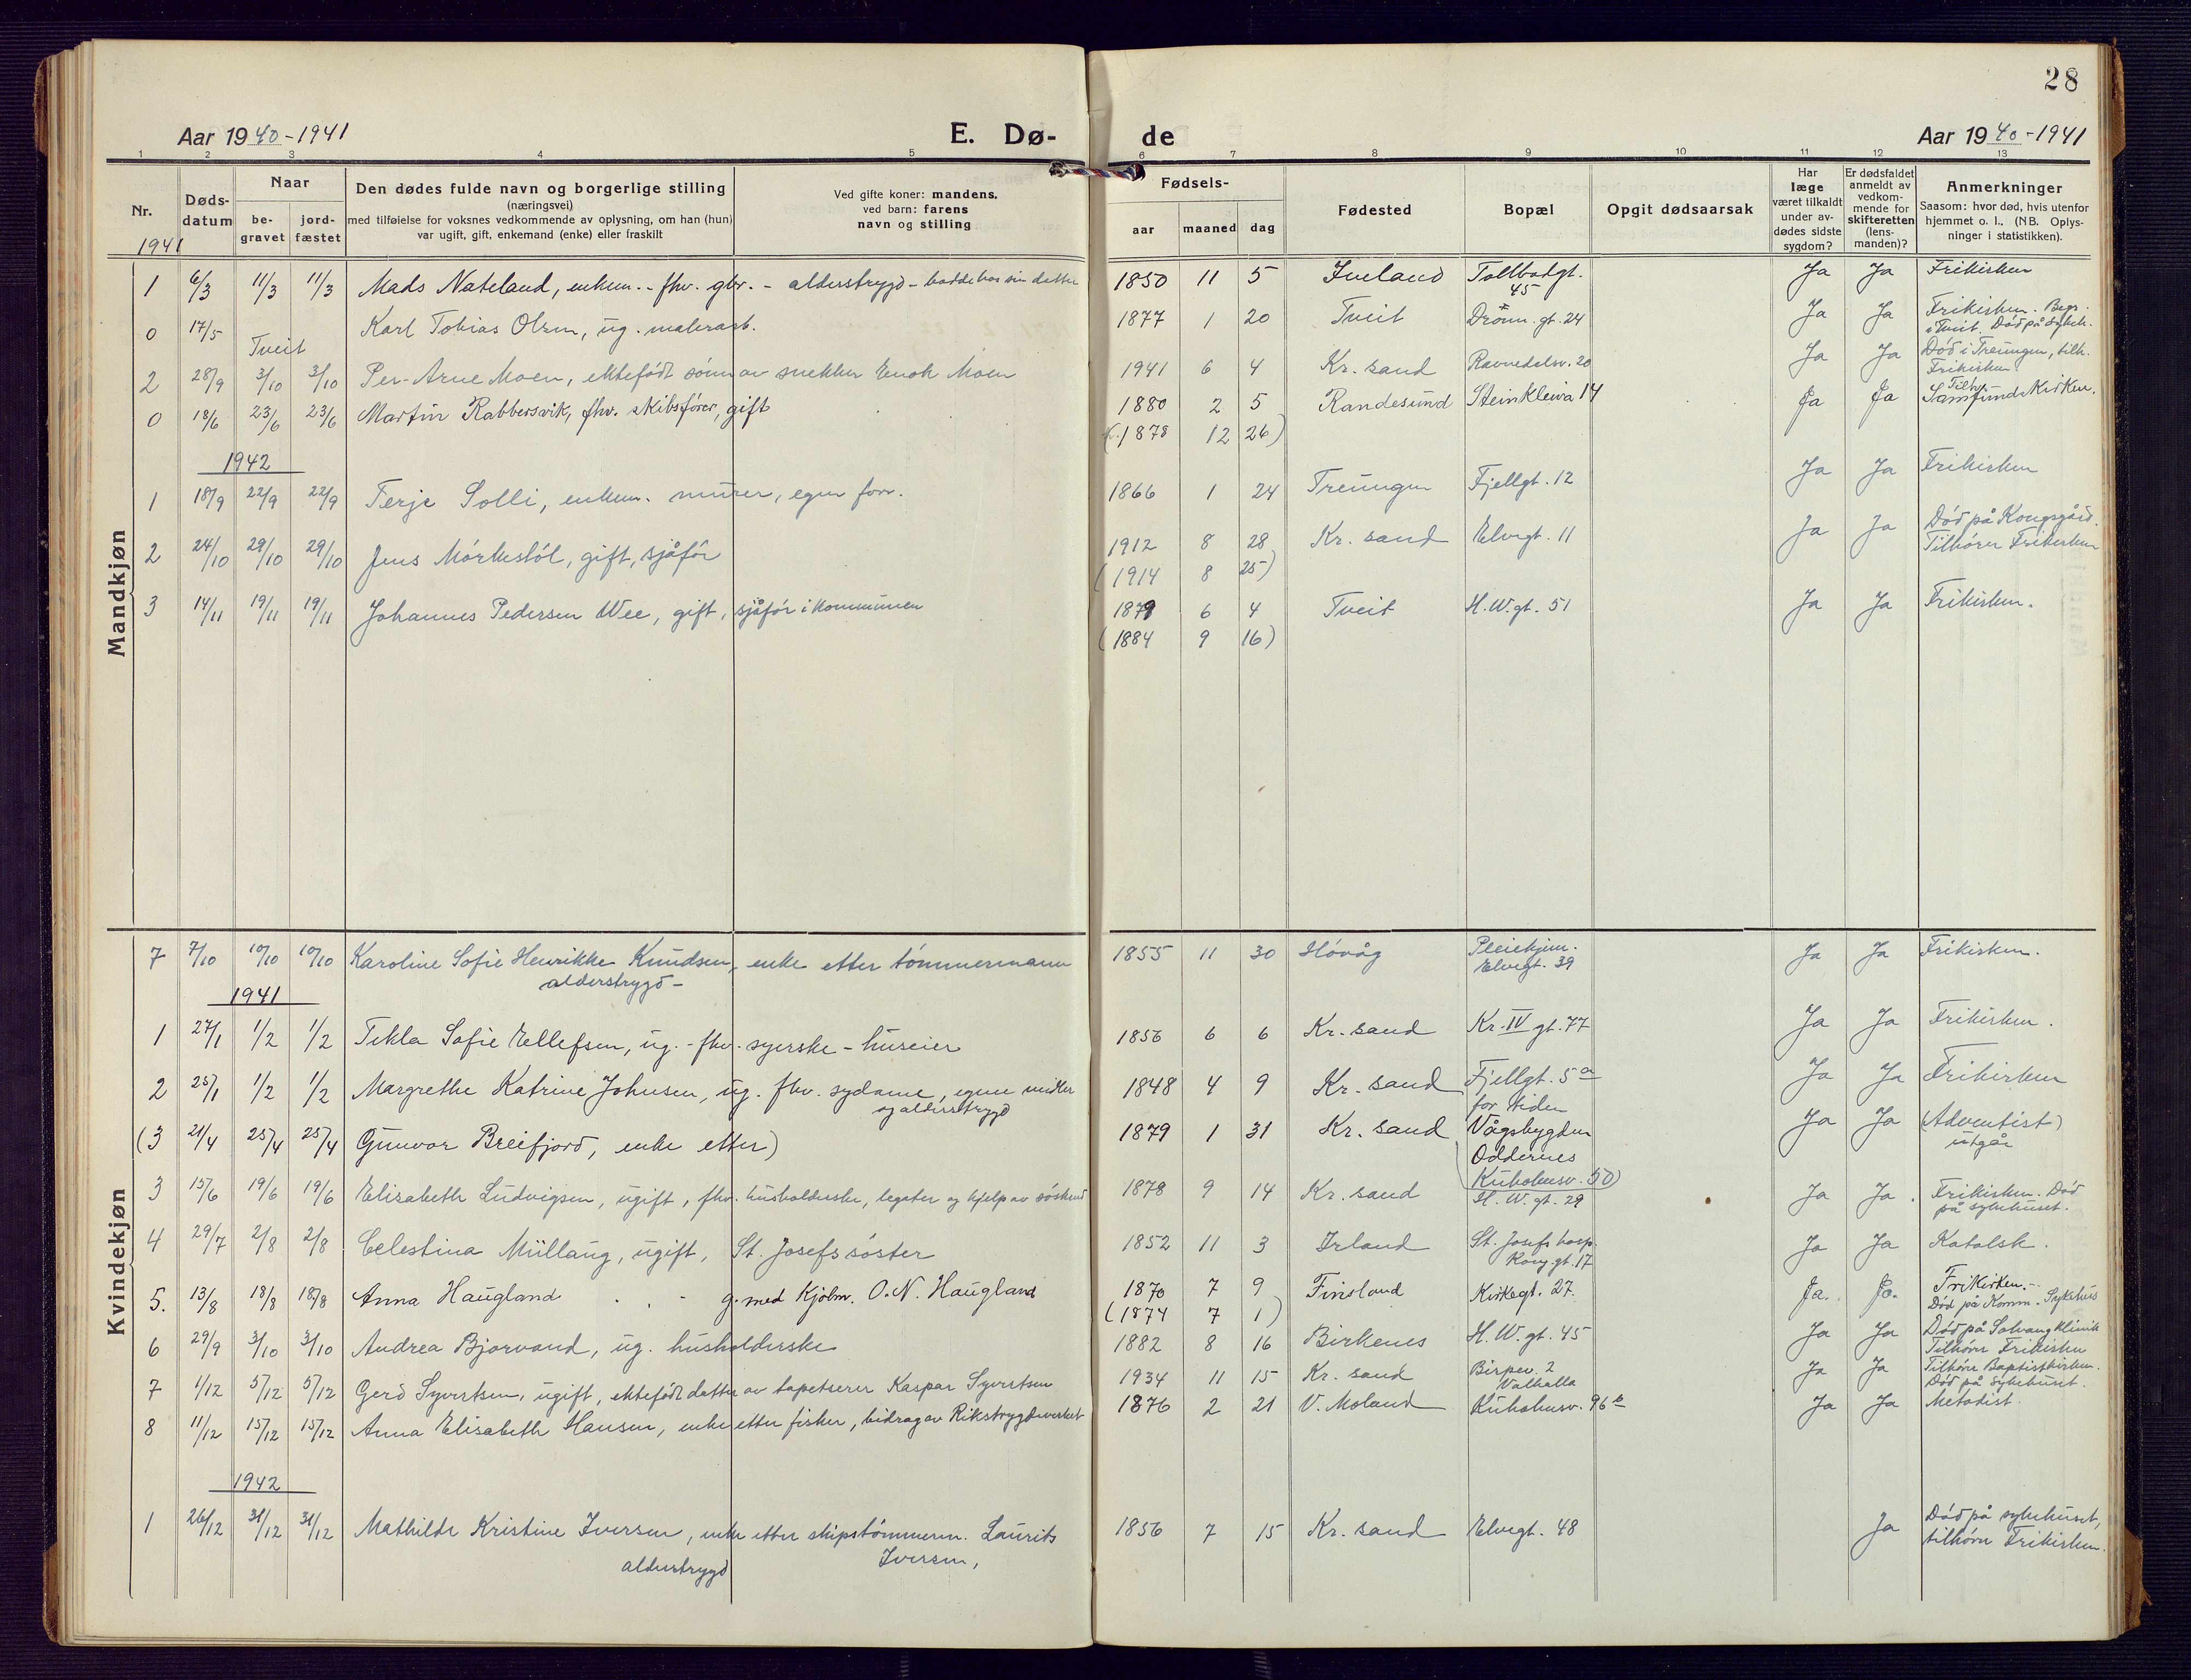 28
Aar 1940-1941
E. Dø-
de
Aar 1940-1941
1 2 3 4 5 6 7 8 9 10 11 12 13
Nr.
1941
Døds-
datum
Naar
be-
gravet
jord-
fæstet
Den dødes fulde navn og borgerlige stilling
(næringsvei)
med tilføielse for voksnes vedkommende av oplysning, om han (hun)
var ugift, gift, enkemand (enke) eller fraskilt
Ved gifte koner: mandens,
ved barn: farens
navn og stilling
Fødsels-
aar maaned dag
Fødested
Bopæl
Opgit dødsaarsak
Har
læge
været tilkaldt
under av-
dødes sidste
sygdom?
Er dødsfaldet
anmeldt av
vedkom-
mende for
skifteretten
(lens-
manden)?
Anmerkninger
Saasom: hvor død, hvis utenfor
hjemmet o. l., (NB. Oplys-
ninger i statistikken).
Mandkjøn
1 6/3 11/3 11/3 Mads Nateland, enkem. - fhv. gbr. - alderstrygd - bodde hos sin datter 1850 11 5 Iveland Tollbodgt. 45 Ja Ja Frikirken
0 17/5 Tveit Karl Tobias Olsen, ug. malerarb. 1877 1 20 Tveit Dronn. gt. 24 Ja Ja Frikirken. Begr.
i Tveit. Død på sykeh.
2 28/9 3/10 3/10 Per-Arne Moen, ektefødt sønn av snekker Enok Moen 1941 6 4 Kr. sand Ravnedalsv. 20 Ja Ja Død i Treungen, tilh.
Frikirken
0 18/6 23/6 23/6 Martin Rabbersvik, fhv. skibsfører, gift 1880 2 5 Randesund Steinkleiva 14 Ja Ja Tilh.
Samfundskirken.
(f. 1878 12 26)
1942
1 18/9 22/9 22/9 Terje Solli, enkem. murer, egen forr. 1866 1 24 Treungen Fjellgt. 12 Ja Ja Frikirken
2 24/10 29/10 29/10 Jens Mørkestøl, gift, sjåfør 1912 8 28 Kr. sand Elvegt. 11 Ja Ja Død på Kongsgård.
Tilhører Frikirken
(1914 8 25)
3 14/11 19/11 19/11 Johannes Pedersen Wee, gift, sjåfør i kommunen 1879 6 4 Tveit H. W. gt. 51 Ja Ja Frikirken.
(1884 9 16)
Kvindekjøn
7 7/10 10/10 10/10 Karoline Sofie Henrikke Knudsen, enke etter tømmermann 1855 11 30 Høvåg Pleiehjem. Ja Ja Frikirken.
alderstrygd - Elvegt. 39
1941
1 27/1 1/2 1/2 Tekla Sofie Ellefsen, ug. - fhv. syerske - huseier 1856 6 6 Kr. sand Kr. IV gt. 77 Ja Ja Frikirken.
2 25/1 1/2 1/2 Margrethe Katrine Johnsen, ug. fhv. sydame, egne midler 1848 4 9 Kr. sand Fjellgt. 5 a Ja Ja Frikirken
og alderstrygd
for tiden
(3 21/4 25/4 25/4 Gunvor Breifjord, enke etter) 1879 1 31 Kr. sand Vågsbygden Ja Ja (Adventist)
Oddernes utgår
Kuholmsv. 50)
3 15/6 19/6 19/6 Elisabeth Ludvigsen, ugift, fhv. husholderske, legater og hjelp av søskend 1878 9 14 Kr. sand H. W. gt. 29 Ja Ja. Frikirken. Død
på sykehuset.
4 29/7 2/8 2/8 Celestina Müllang, ugift, St. Josefs søster 1852 11 3 Irland St. Josefs hosp. Ja Ja Katolsk.
Kong. gt. 17
5. 13/8 18/8 18/8 Anna Haugland g. med Kjølm. O. N. Haugland 1870 7 9 Finsland Kirkegt. 27. Ja. Ja. Frikirken. -
Død på Komm. Sykehus
(1874 7 1)
6 29/9 3/10 3/10 Andrea Bjorvand, ug. husholderske 1882 8 16 Birkenes H. W. gt. 45 Ja Ja Død på Solvang klinik
Tilhører Frikirken
7 1/12 5/12 5/12 Gerd Syvertsen, ugift, ektefødt datter av tapetserer Kaspar Syvertsen 1934 11 15 Kr. sand Birpev. 2 Ja Ja Tilhører Baptistkirken.
Valhalla Død på sykehuset.
8 11/12 15/12 15/12 Anna Elisabeth Hansen, enke etter fisker, bidrag av Rikstrygdeverket 1876 2 21 V. Moland Kuholmsv. 96 b Ja Ja Metodist.
1942
1 26/12 31/12 31/12 Mathilde Kristine Iversen, enke etter skipstømmerm. Laurits 1856 7 15 Kr. sand Elvegt. 48 Ja Død på sykehuset,
alderstrygd Iversen, tilhører Frikirken.